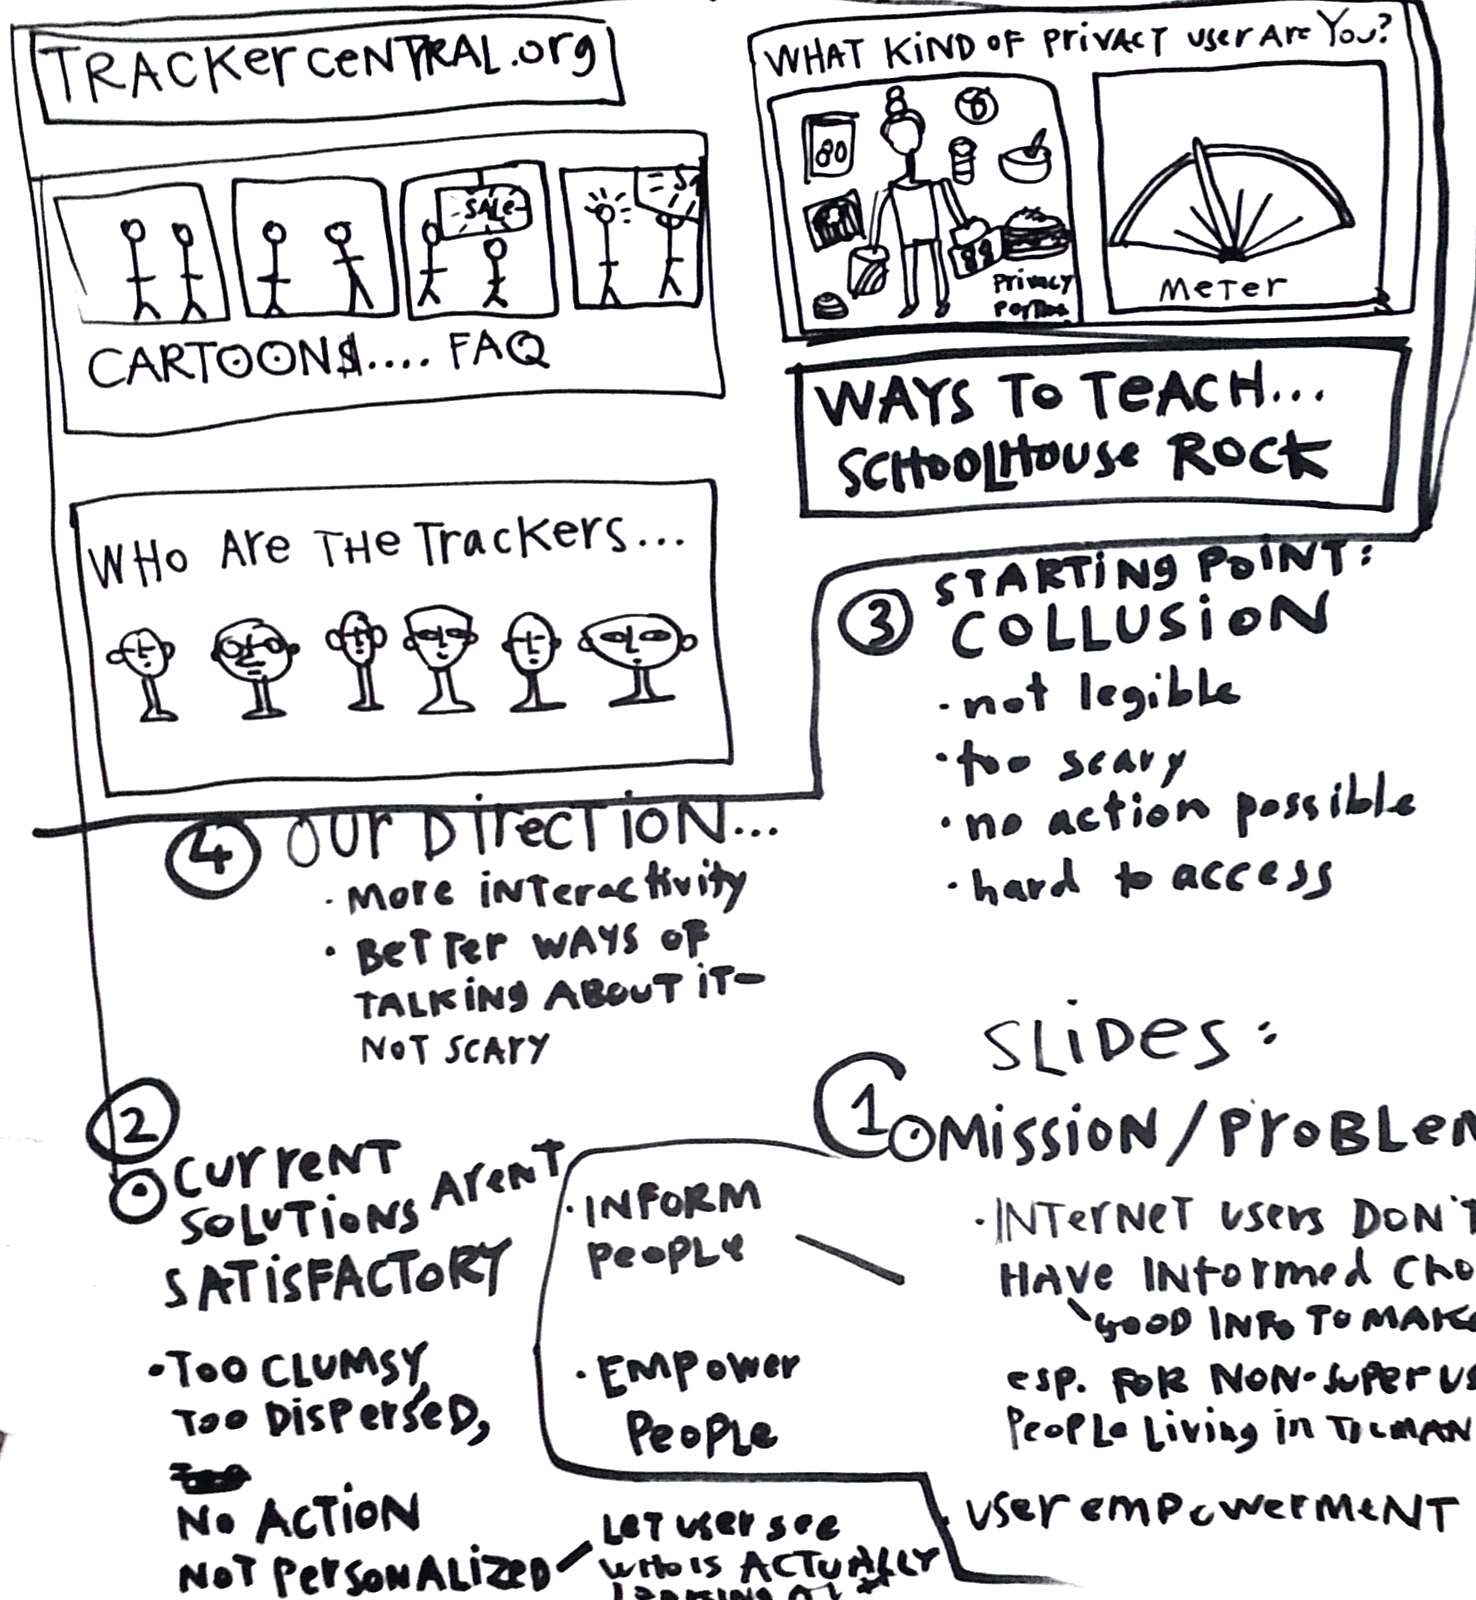 TRACKERCENTRAL.org
SALE
SA
CARTOON$.... FAQ
WHO Are THe TrackerS...
WHAT KiND OF PrivACT user Are You?
80
Privacy
MeTer
WAYS To TeACH...
SCHOOLHOUSe ROCK
3 STARTiNg POiNT:
COLLUSiON
· not legible
· too scary
· no action possible
· hard to access
4 OUr DirecTiON...
· More iNTeractivity
· BeTTer WAYS OF
TALKiNg ABOUT iT-
NoT SCARY
SLiDes:
1 MissiON/ProBLem
· INTerNeT users DON'T
HAVe INformed CHO
GOOD INFo To MAKe
esp. FOR NON-Super us
PeoPLe Living in
user emPowerMeNT
2
CurreNT
SOLUTiONS AreNT
SATiSFACTORY
· Too CLUMSY,
Too DisPerseD,
No ACTiON
NoT PerSoNALizeD
LeT user see
WHo is ACTUALLY
· INFORM
PeoPLe
· EMPower
PeoPLe